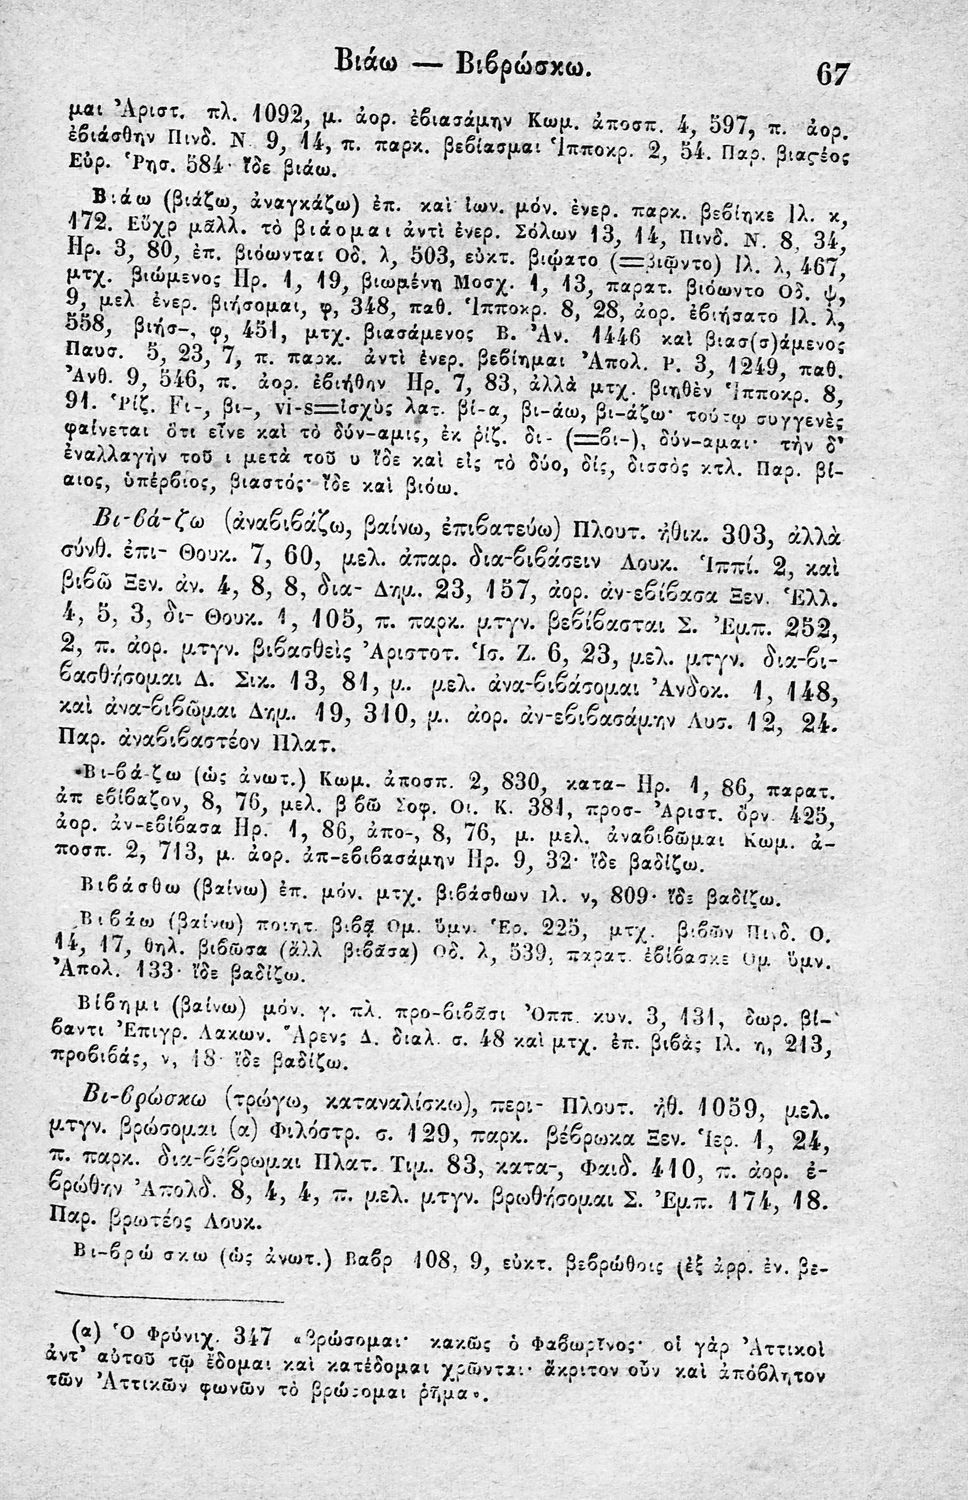 Βιάω — Βιβρώσκω.
67
μαι Ἀριστ. πλ. 1092, μ. ἀορ. ἐβιασάμην Κωμ. ἀποσπ. 4, 597, π. ἀορ.
ἐβιάσθην Πινδ. Ν. 9, 14, π. παρκ. βεβίασμαι Ἱπποκρ. 2, 54. Παρ. βιαστέος
Εὐρ. Ῥησ. 584· ἴδε βιάω.
Βιάω (βιάζω, ἀναγκάζω) ἐπ. καὶ ἰων. μόν. ἐνερ. παρκ. βεβίηκε Ἰλ. κ,
172. Εὔχρ μᾶλλ. τὸ βιάομαι ἀντὶ ἐνερ. Σόλων 13, 14, Πινδ. Ν. 8, 34,
Ηρ. 3, 80, ἐπ. βιόωνται Οδ. λ, 503, εὐκτ. βιῴατο (=βιῷντο) Ἰλ. λ, 467,
μτχ. βιώμενος Ηρ. 1, 19, βιωμένη Μοσχ. 1, 13, παρατ. βιόωντο Οδ. ψ,
9, μελ ἐνερ. βιήσομαι, φ, 348, παθ. Ἱπποκρ. 8, 28, ἀορ. ἐβιήσατο Ἰλ. λ,
558, βιήσ-, φ, 451, μτχ. βιασάμενος Β. Ἀν. 1446 καὶ βιασ(σ)άμενος
Παυσ. 5, 23, 7, π. παρκ. ἀντὶ ἐνερ. βεβίημαι Ἀπολ. Ρ. 3, 1249, παθ.
Ἀνθ. 9, 546, π. ἀορ. ἐβιήθην Ηρ. 7, 83, ἀλλὰ μτχ. βιηθὲν Ἱπποκρ. 8,
91. Ῥίζ. Fι-, βι-, vi-s=ἰσχὺς λατ. βί-α, βι-άω, βι-άζω· τούτῳ συγγενὲς
φαίνεται ὅτι εἶνε καὶ τὸ δύν-αμις, ἐκ ῥίζ. δι- (=βι-), δύν-αμαι· τὴν δ'
ἐναλλαγὴν τοῦ ι μετὰ τοῦ υ ἴδε καὶ εἰς τὸ δύο, δίς, δισσὸς κτλ. Παρ. βί-
αιος, ὑπέρβιος, βιαστός· ἴδε καὶ βιόω.
Βι-βά-ζω (ἀναβιβάζω, βαίνω, ἐπιβατεύω) Πλουτ. ἠθικ. 303, ἀλλὰ
σύνθ. ἐπι- Θουκ. 7, 60, μελ. ἀπαρ. δια-βιβάσειν Λουκ. Ἱππί. 2, καὶ
βιβῶ Ξεν. ἀν. 4, 8, 8, δια- Δημ. 23, 157, ἀορ. ἀν-εβίβασα Ξεν. Ἑλλ.
4, 5, 3, δι- Θουκ. 1, 105, π. παρκ. μτγν. βεβίβασται Σ. Ἐμπ. 252,
2, π. ἀορ. μτγν. βιβασθεὶς Ἀριστοτ. Ἱσ. Ζ. 6, 23, μελ. μτγν. δια-βι-
βασθήσομαι Δ. Σικ. 13, 81, μ. μελ. ἀνα-βιβάσομαι Ἀνδοκ. 1, 148,
καὶ ἀνα-βιβῶμαι Δημ. 19, 310, μ. ἀορ. ἀν-εβιβασάμην Λυσ. 12, 24.
Παρ. ἀναβιβαστέον Πλατ.
Βι-βά-ζω (ὡς ἀνωτ.) Κωμ. ἀποσπ. 2, 830, κατα- Ηρ. 1, 86, παρατ.
ἀπ εβίβαζον, 8, 76, μελ. β βῶ Σοφ. Οι. Κ. 381, προσ- Ἀριστ. ὄρν 425,
ἀορ. ἀν-εβίβασα Ηρ. 1, 86, ἀπο-, 8, 76, μ. μελ. ἀναβιβῶμαι Κωμ. ἀ-
ποσπ. 2, 713, μ. ἀορ. ἀπ-εβιβασάμην Ηρ. 9, 32· ἴδε βαδίζω.
Βιβάσθω (βαίνω) ἐπ. μόν. μτχ. βιβάσθων Ιλ. ν, 809· ἴδε βαδίζω.
Βιβάω (βαίνω) ποιητ. βιβᾷ Ομ. ὕμν. Ἑρ. 225, μτχ. βιβῶν Πινδ. Ο.
14, 17, θηλ. βιβῶσα (ἄλλ βιβᾶσα) Οδ. λ, 539, παρατ. ἐβίβασκε Ομ ὕμν.
Ἀπολ. 133· ἴδε βαδίζω.
Βίβημι (βαίνω) μόν. γ. πλ. προ-βιβᾶσι Ὀππ. κυν. 3, 131, δωρ. βί-
βαντι Ἐπιγρ. Λακων. Ἄρενς Δ. διαλ. σ. 48 καὶ μτχ. ἐπ. βιβὰς Ιλ. η, 213,
προβιβάς, ν, 18· ἴδε βαδίζω.
Βι-βρώσκω (τρώγω, καταναλίσκω), περι- Πλουτ. ἠθ. 1059, μελ.
μτγν. βρώσομαι (α) Φιλόστρ. σ. 129, παρκ. βέβρωκα Ξεν. Ἱερ. 1, 24,
π. παρκ. δια-βέβρωμαι Πλατ. Τιμ. 83, κατα-, Φαιδ. 110, π. ἀορ. ἐ-
βρώθην Ἀπολδ. 8, 4, 4, π. μελ. μτγν. βρωθήσομαι Σ. Ἐμπ. 174, 18.
Παρ. βρωτέος Λουκ.
Βι-βρώ σκω (ὡς ἀνωτ.) Βαβρ 108, 9, εὐκτ. βεβρώθοις (ἐξ ἀρρ. ἐν. βε-
(α) Ὁ Φρύνιχ. 347 «βρώσομαι· κακῶς ὁ Φαβωρῖνος· οἱ γὰρ Ἀττικοὶ
ἀντ' αὐτοῦ τῷ ἔδομαι καὶ κατέδομαι χρῶνται· ἄκριτον οὖν καὶ ἀπόβλητον
τῶν Ἀττικῶν φωνῶν τὸ βρώσομαι ῥῆμα».